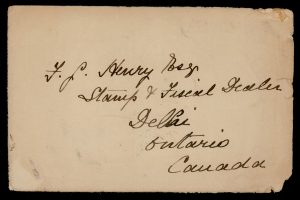 F. S. Henry Esq
Stamp & Fiscal Dealer
Delhi
Ontario
Canada